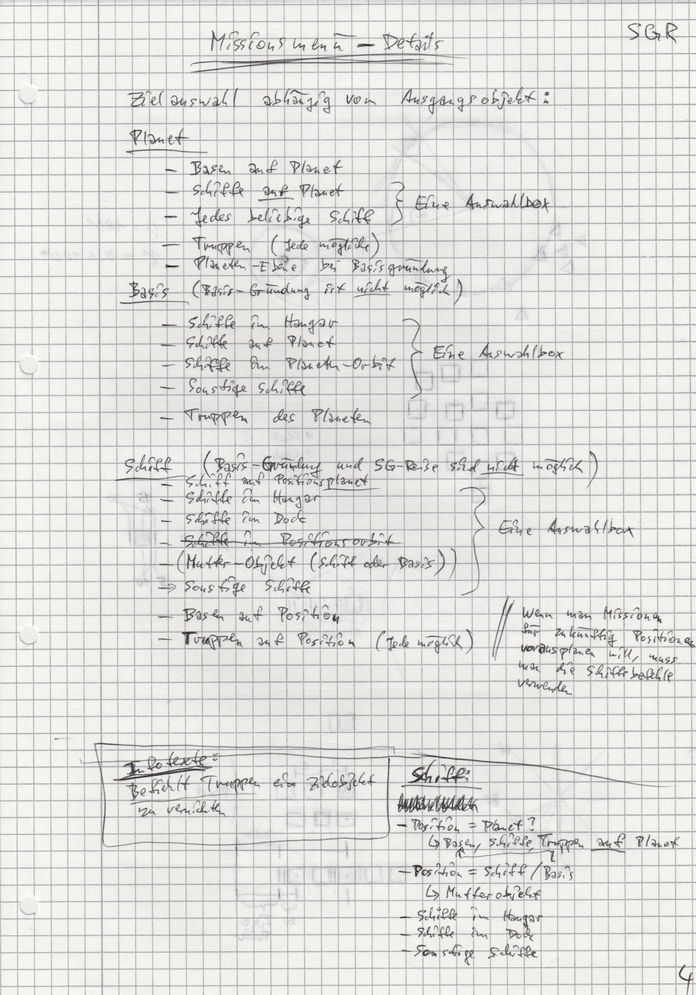 SGR
Missionsmenü – Details
Zielauswahl abhängig vom Ausgangsobjekt:
Planet
– Basen auf Planet
– Schiffe auf Planet
– Jedes beliebige Schiff
Eine Auswahlbox
– Truppen (Jede mögliche)
– Planeten-Ebene bei Basisgründung
Basis (Basis-Gründung ist nicht möglich)
– Schiffe im Hangar
– Schiffe auf Planet
– Schiffe im Planeten-Orbit
– Sonstige Schiffe
Eine Auswahlbox
– Truppen des Planeten
Schiff (Basis-Gründung und SG-Reise sind nicht möglich)
– Schiff auf Positionsplanet
– Schiffe im Hangar
– Schiffe im Dock
– Schiffe im Positionsorbit
– (Mutter-Objekt (Schiff oder Basis))
→ Sonstige Schiffe
Eine Auswahlbox
– Basen auf Position
– Truppen auf Position (Jede möglich)
Wenn man Missionen
für zukünftig Positionen
vorausplanen will, muss
man die Schiffsbefehle
verwenden
Infotexte:
Befiehlt Truppen ein Zielobjekt
zu vernichten
Schiff:
– Position = Planet?
↳ Basen, Schiffe, Truppen auf Planet
– Position = Schiff / Basis
↳ Mutterobjekt
– Schiffe im Hangar
– Schiffe im Dock
– Sonstige Schiffe
4